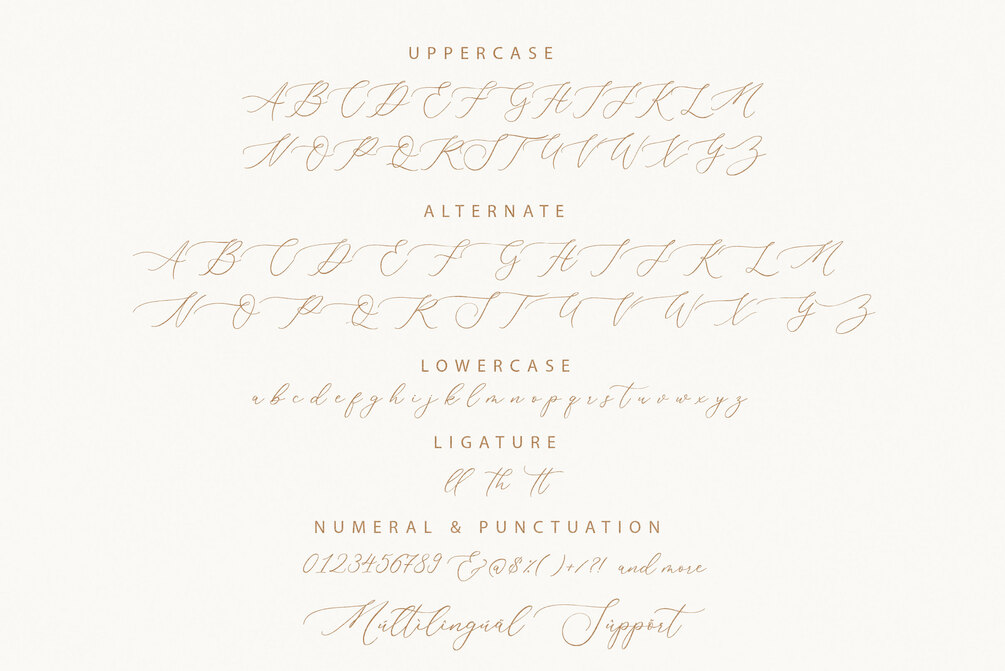 UPPERCASE
ABCDEFGHIJKLM
NOPQRSTUVWXYZ
ALTERNATE
ABCDEFGHIJKLM
NOPQRSTUVWXYZ
LOWERCASE
abcdefghijklmnopqrstuvwxyz
LIGATURE
ll th tt
NUMERAL & PUNCTUATION
0123456789 &@$%( )+/?! and more
Múltilingúál Súppórt